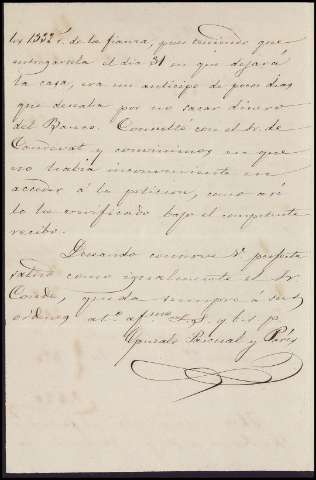 los 1332 r.^s de la fianza, pues teniendo que
entregársela el dia 31 en que dejará
la casa, era un anticipo de pocos dias
que deseaba por no sacar dinero
del Banco. Consulté con el Sr. de
Sandoval y convinimos en que
no habia inconveniente en
acceder á la peticion, como asi
lo he verificado bajo el competente
recibo.
Deseando conserve V. perfecta
salud como igualmente el Sr
Conde, queda siempre á sus
ordenes at.º af^mo S.S. q. b. s. m.
Gonzalo Pascual y París